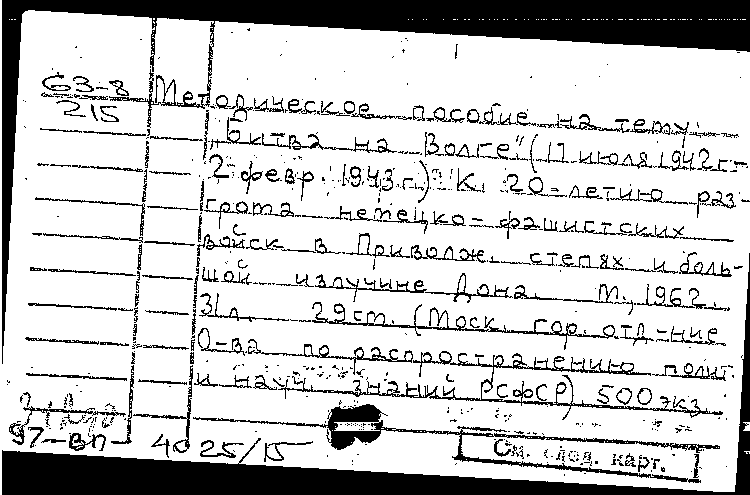 63-8
215
Методическое пособие на тему:
„Битва на Волге" (17 июля 1942 г. –
2 февр. 1943 г.). К 20-летию раз-
грома немецко-фашистских
войск в Приволж. степях и боль-
шой излучине Дона. М., 1962.
31л. 29см. (Моск. гор. отд-ние
О-ва по распространению полит.
и науч. знаний РСФСР). 500 экз.
97-вп- 4025/15
См. след. карт.